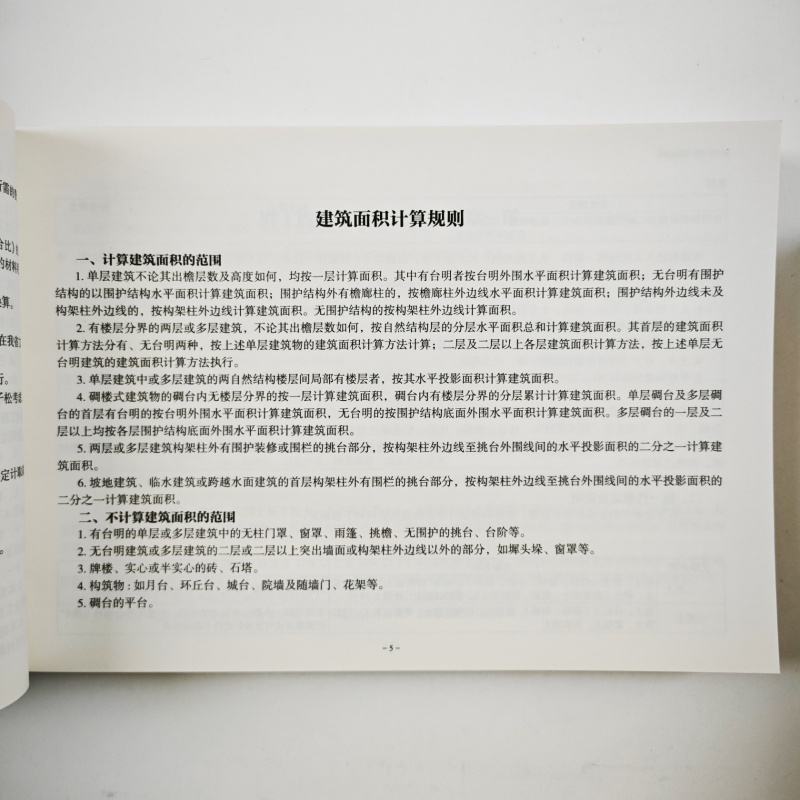 建筑面积计算规则
一、计算建筑面积的范围
1. 单层建筑不论其出檐层数及高度如何，均按一层计算面积。其中有台明者按台明外围水平面积计算建筑面积；无台明有围护
结构的以围护结构水平面积计算建筑面积；围护结构外有檐廊柱的，按檐廊柱外边线水平面积计算建筑面积；围护结构外边线未及
构架柱外边线的，按构架柱外边线计算建筑面积。无围护结构的按构架柱外边线计算面积。
2. 有楼层分界的两层或多层建筑，不论其出檐层数如何，按自然结构层的分层水平面积总和计算建筑面积。其首层的建筑面积
计算方法分有、无台明两种，按上述单层建筑物的建筑面积计算方法计算；二层及二层以上各层建筑面积计算方法，按上述单层无
台明建筑的建筑面积计算方法执行。
3. 单层建筑中或多层建筑的两自然结构楼层间局部有楼层者，按其水平投影面积计算建筑面积。
4. 碉楼式建筑物的碉台内无楼层分界的按一层计算建筑面积，碉台内有楼层分界的分层累计计算建筑面积。单层碉台及多层碉
台的首层有台明的按台明外围水平面积计算建筑面积，无台明的按围护结构底面外围水平面积计算建筑面积。多层碉台的一层及二
层以上均按各层围护结构底面外围水平面积计算建筑面积。
5. 两层或多层建筑构架柱外有围护装修或围栏的挑台部分，按构架柱外边线至挑台外围线间的水平投影面积的二分之一计算建
筑面积。
6. 坡地建筑、临水建筑或跨越水面建筑的首层构架柱外有围栏的挑台部分，按构架柱外边线至挑台外围线间的水平投影面积的
二分之一计算建筑面积。
二、不计算建筑面积的范围
1. 有台明的单层或多层建筑中的无柱门罩、窗罩、雨篷、挑檐、无围护的挑台、台阶等。
2. 无台明建筑或多层建筑的二层或二层以上突出墙面或构架柱外边线以外的部分，如墀头垛、窗罩等。
3. 牌楼、实心或半实心的砖、石塔。
4. 构筑物：如月台、环丘台、城台、院墙及随墙门、花架等。
5. 碉台的平台。
– 5 –